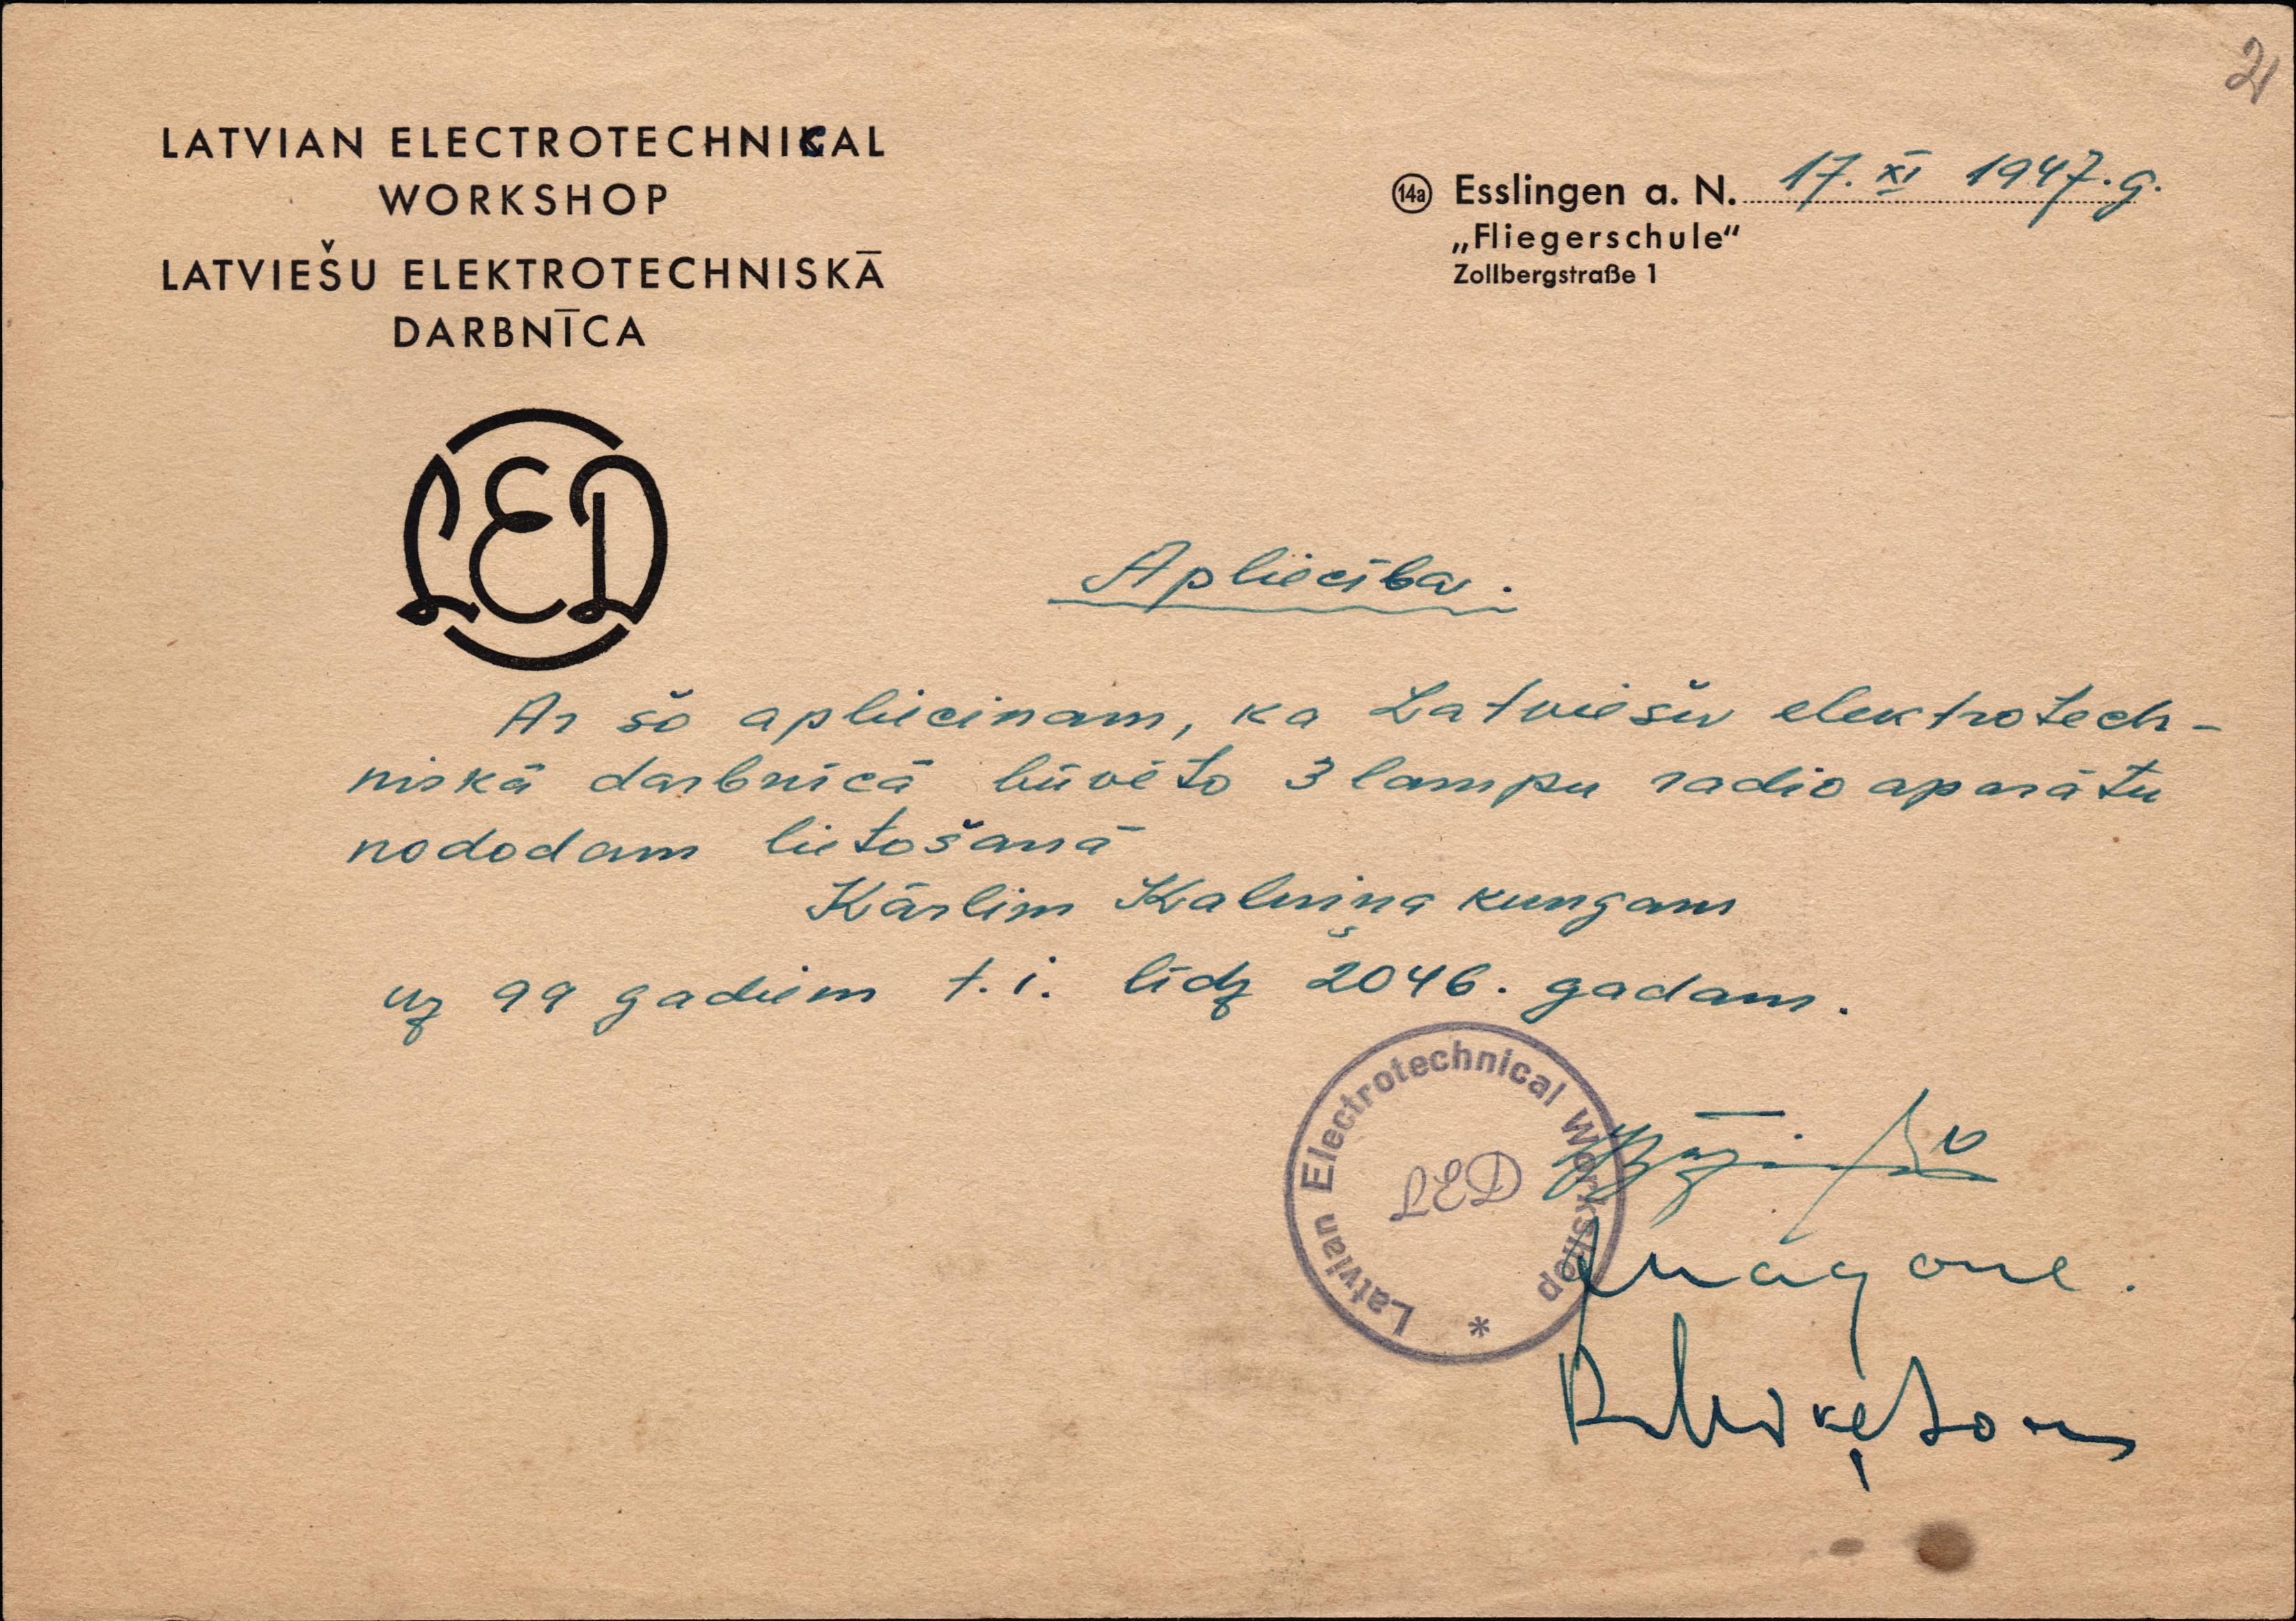 21
LATVIAN ELECTROTECHNICAL
WORKSHOP
LATVIEŠU ELEKTROTECHNISKĀ
DARBNĪCA
LED
14a Esslingen a. N. 17. XI 1947. g.
„Fliegerschule“
Zollbergstraße 1
Apliecība.
Ar šo apliecinam, ka Latviešu elektrotech-
niskā darbnīcā būvēto 3 lampu radio aparātu
nododam lietošanā
Kārlim Kalniņa kungam
uz 99 gadiem t. i. līdz 2046. gadam.
Latvian Electrotechnical Workshop
LED
*